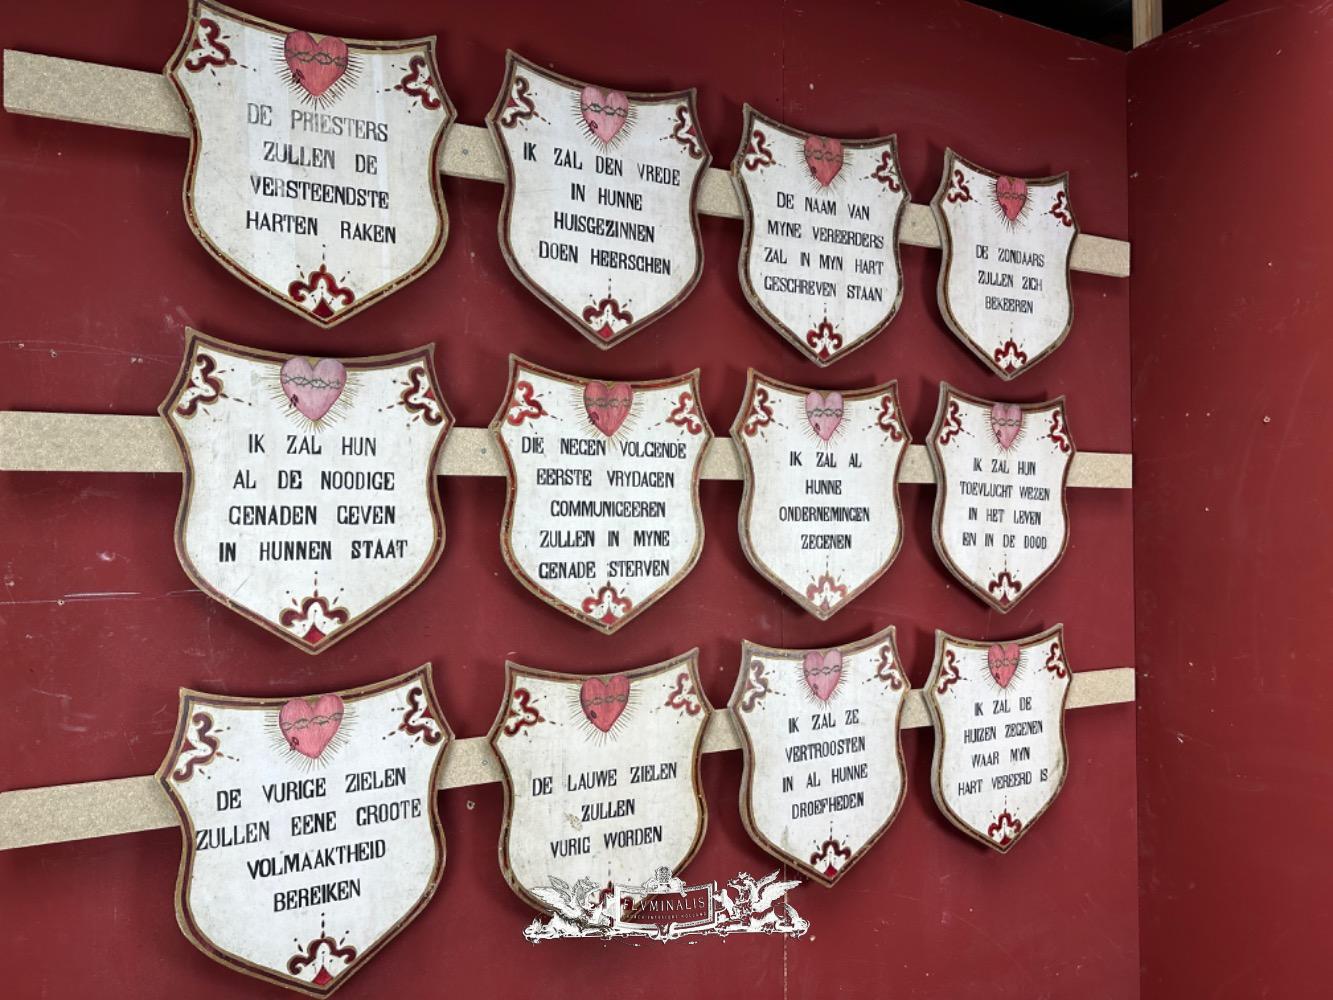 DE PRIESTERS
ZULLEN DE
VERSTEENDSTE
HARTEN RAKEN
IK ZAL DEN VREDE
IN HUNNE
HUISGEZINNEN
DOEN HEERSCHEN
DE NAAM VAN
MYNE VEREERDERS
ZAL IN MYN HART
GESCHREVEN STAAN
DE ZONDAARS
ZULLEN ZICH
BEKEEREN
IK ZAL HUN
AL DE NOODIGE
GENADEN GEVEN
IN HUNNEN STAAT
DIE NEGEN VOLGENDE
EERSTE VRYDAGEN
COMMUNICEEREN
ZULLEN IN MYNE
GENADE STERVEN
IK ZAL AL
HUNNE
ONDERNEMINGEN
ZEGENEN
IK ZAL HUN
TOEVLUCHT WEZEN
IN HET LEVEN
EN IN DE DOOD
DE VURIGE ZIELEN
ZULLEN EENE GROOTE
VOLMAAKTHEID
BEREIKEN
DE LAUWE ZIELEN
ZULLEN
VURIG WORDEN
IK ZAL ZE
VERTROOSTEN
IN AL HUNNE
DROEFHEDEN
IK ZAL DE
HUIZEN ZEGENEN
WAAR MYN
HART VEREERD IS
FLVMINALIS